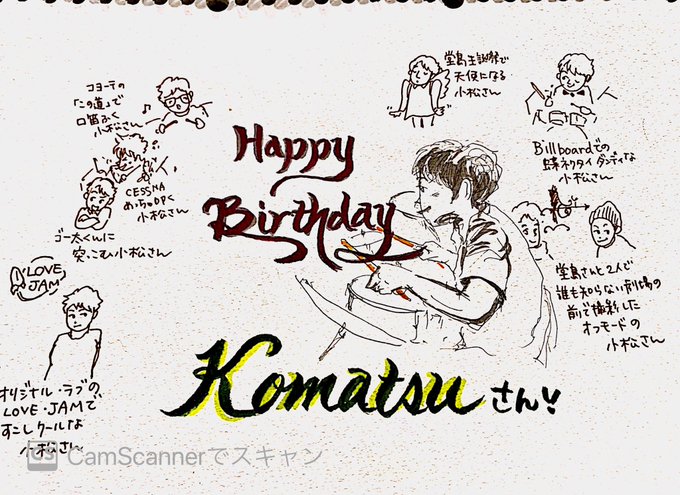 コヨーテの
「この道」で
口笛ふく
小松さん
CESSNA
小松さん
ゴー太くんに
突っこむ小松さん
LOVE
JAM
オリジナル・ラブの
LOVE・JAMで
すこしクールな
小松さん
Happy
Birthday
Komatsuさん!!
堂島生誕祭で
天使になる
小松さん
Billboardでの
蝶ネクタイ ダンディな
小松さん
堂島さんと2人で
誰も知らない劇場の
前で撮影した
オフモードの
小松さん
CS CamScannerでスキャン